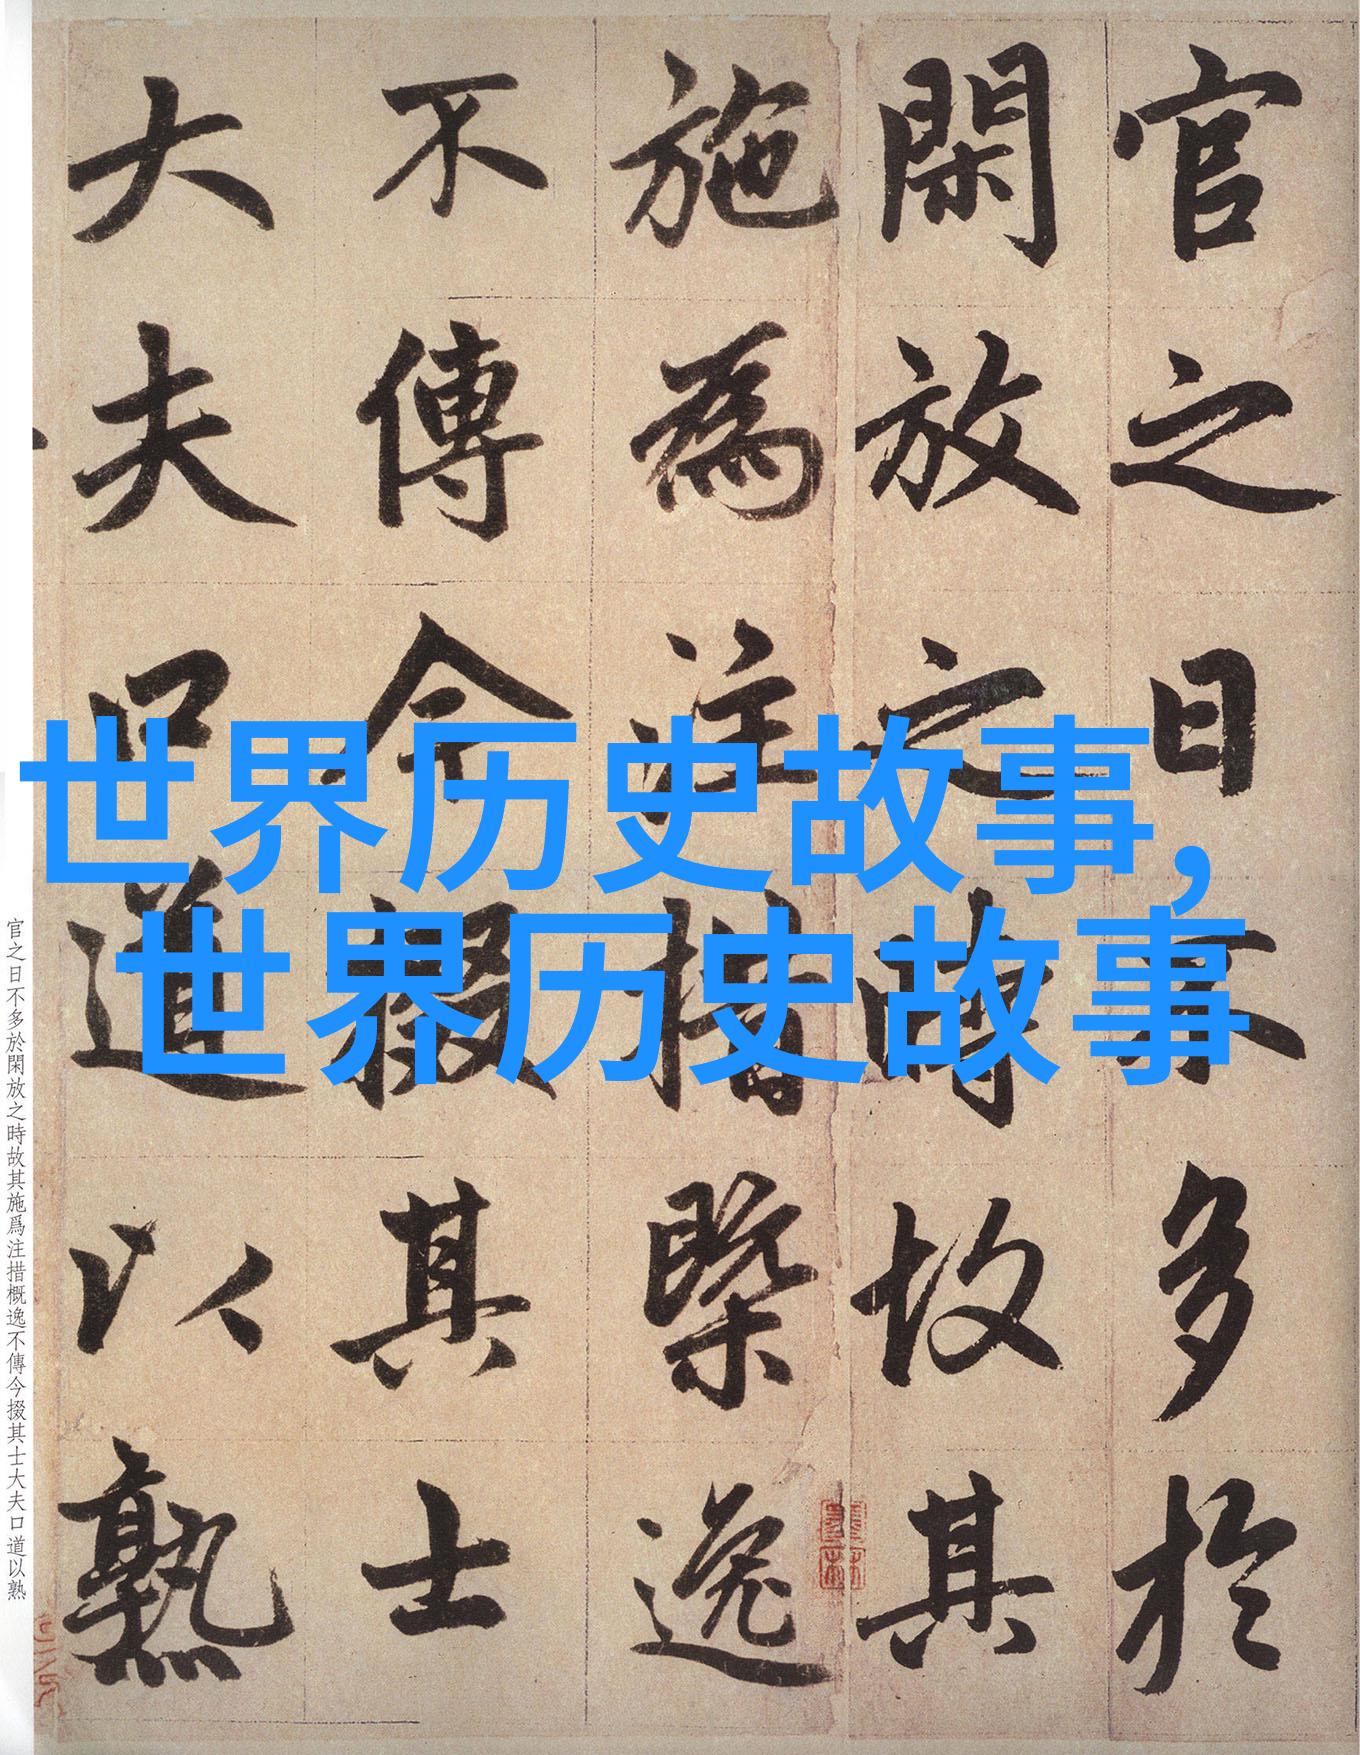 官之日不多於
閑放之時故其
施為注措槩逸
不傳今掇其士
大夫口道以熟
世界历史故事,
世界历史故事
官之日不多於閑放之時故其施爲注措概逸不傳今掇其士大夫口道以熟